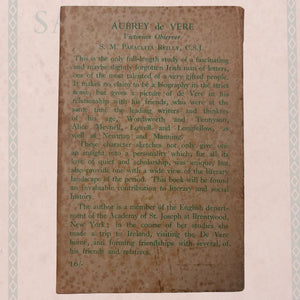 AUBREY de VERE
Victorian Observer
S. M. PARACLITA REILLY, C.S.J.
This is the only full-length study of a fascinating
and unjustifiably forgotten Irish man of letters,
one of the most talented of a very gifted people.
It makes no claim to be a biography in the strict
sense, but gives a picture of de Vere in his
relationship with his friends, who were at the
same time the leading writers and thinkers
of his age, Wordsworth and Tennyson,
Alice Meynell, Lowell and Longfellow, as
well as Newman and Manning.
These character sketches not only give one
an insight into a personality which, for all its
love of quiet and scholarship, was uniquely but
also provide one with a wide view of the literary
landscape of the period. This book will be found
an invaluable contribution to literary and social
history.
The author is a member of the English depart-
ment of the Academy of St. Joseph at Brentwood,
New York; in the course of her studies she
made a trip to Ireland, visiting the De Vere
home, and forming friendships with several of
his friends and relatives.
16/-